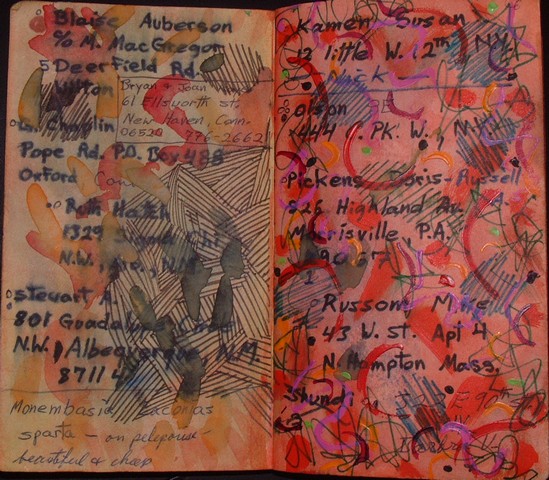 Blaise Auberson
% M. MacGregor
5 Deerfield Rd.
Wilton
Bryan + Joan
61 Ellsworth st.
New Haven, Conn-
06520 776-2662
Chaplin
Pope Rd. P.O. Box 488
Oxford Conn
Ruth Hatch
1329 Sigma Chi
N.W., N.M.
Stewart A.
801 Guadalupe
N.W., Albequerque, N.M.
87114
Monembasia Laconias
sparta — on pelepouse-
beautiful & cheap
Kamen Susan
12 little W. 12th N.Y.
Nick
Olson
444 C. PK. W., N.Y.
Pickens Doris-Russell
826 Highland Av.
Morrisville, P.A.
Russom Mike
43 W. St. Apt 4
N. Hampton Mass.
Shundi
E 90th